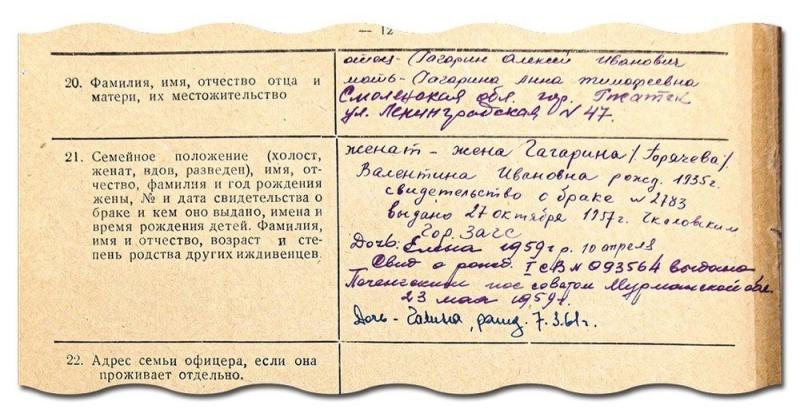 — 12
20. Фамилия, имя, отчество отца и
матери, их местожительство
отец - Гагарин Алексей Иванович
мать - Гагарина Анна Тимофеевна
Смоленская обл. гор. Гжатск
ул. Ленинградская N 47.
21. Семейное положение (холост,
женат, вдов, разведен), имя, от-
чество, фамилия и год рождения
жены, № и дата свидетельства о
браке и кем оно выдано, имена и
время рождения детей. Фамилия,
имя и отчество, возраст и сте-
пень родства других иждивенцев.
женат - жена Гагарина /Горячева/
Валентина Ивановна рожд. 1935 г.
свидетельство о браке N 2783
выдано 27 октября 1957г. Чкаловским
Гор. ЗАГС
Дочь: Елена 1959 г р. 10 апреля
Свид о рожд. I СВ N 093564 выдано
Печенгским пос советом Мурманской обл.
23 мая 1959г.
Дочь - Галина, рожд. 7.3.61г.
22. Адрес семьи офицера, если она
проживает отдельно.